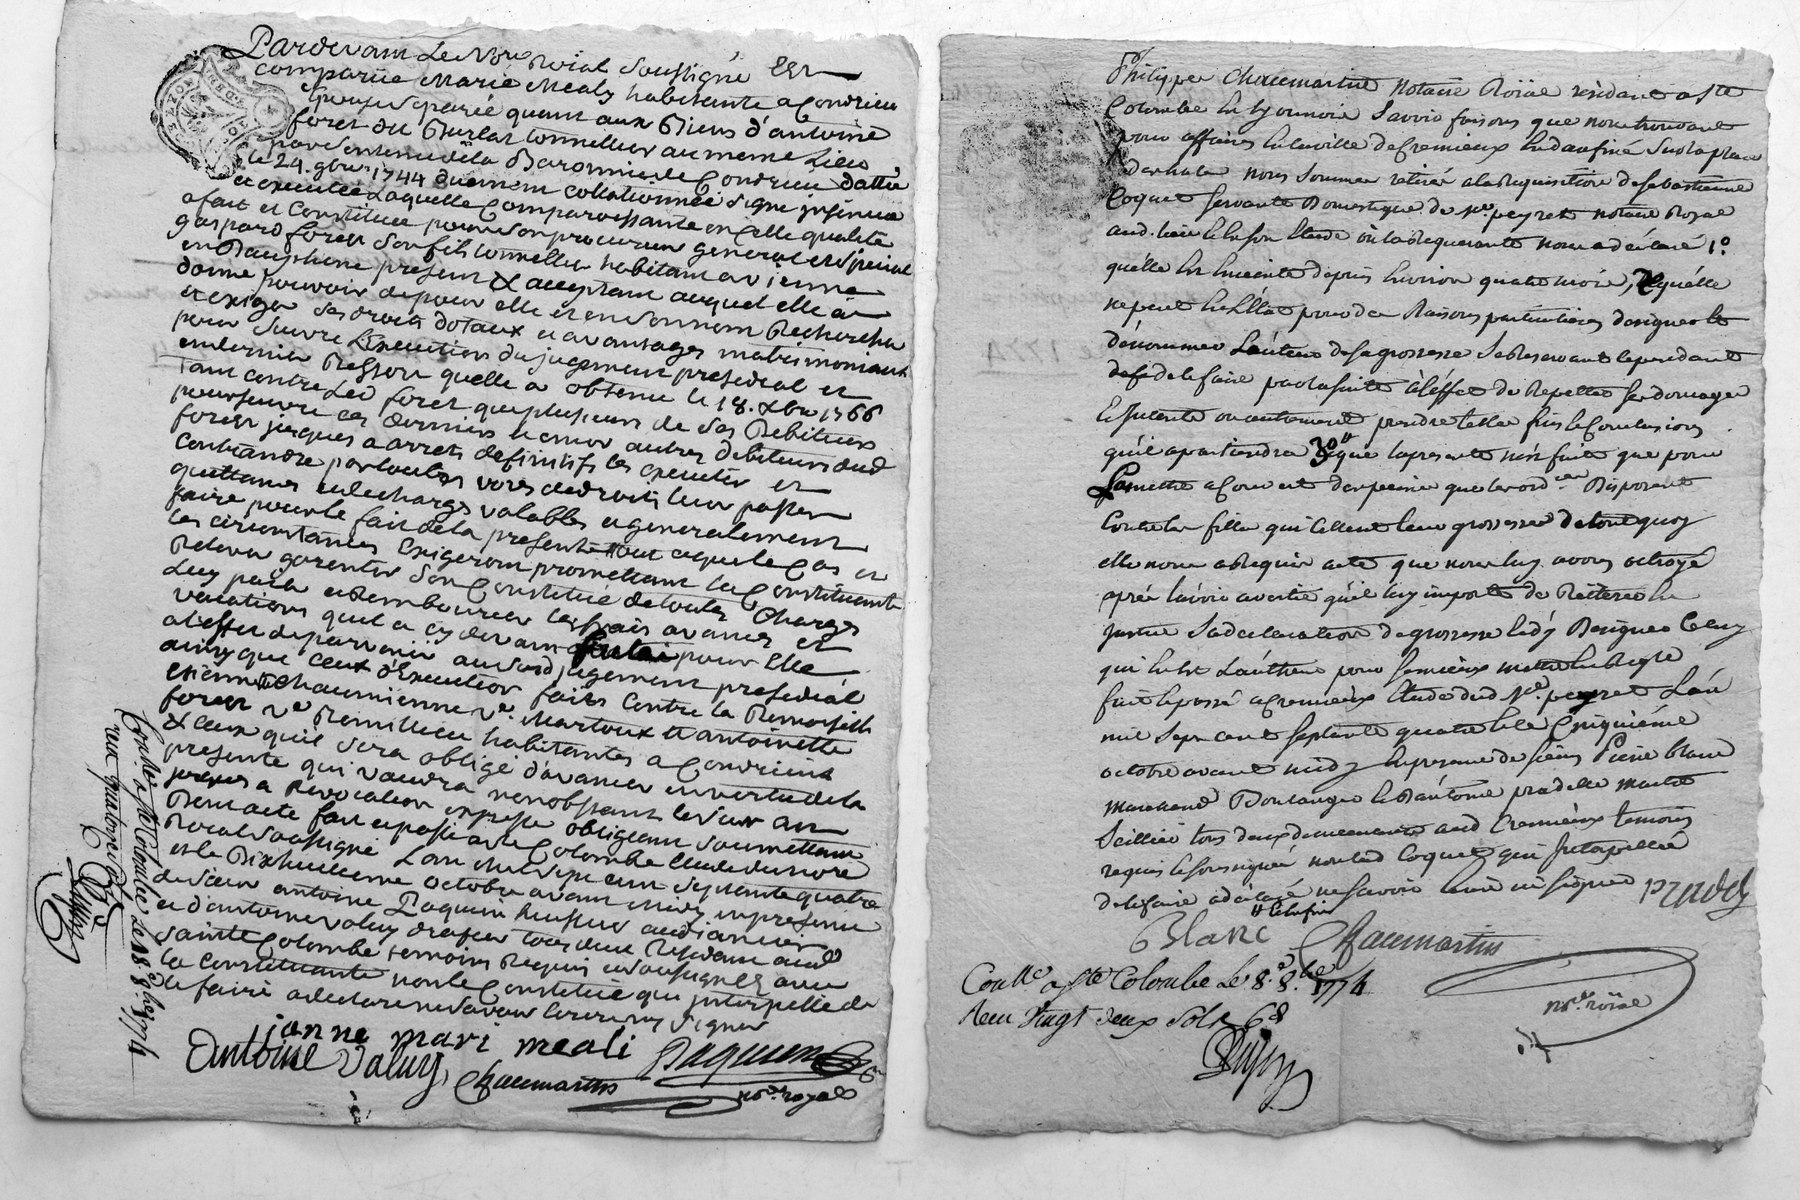 Pardevant Le Nore roial Soussigné Est
comparüe Marie Mealy habitante a Condrieu
Epouse separée quant aux Biens d'antoine
foret du Burlat tonnellier au meme Lieu
par Sentence de la Baronnie de Condrieu dattée
le 24. 9bre. 1744 duement collationnée signé
et executée Laquelle Comparoissante en Cette qualité
a fait et Constitué pour son procureur general et special
gaspard foret Son fils tonnellier habitant a vienne
en Dauphiné present & acceptant auquel elle a
donné pouvoir de pour elle et en son nom Rechercher
et exiger Ses droits dotaux et avantages matrimoniaux
pour suivre L'execution du jugement presidial et
en dernier Ressort quelle a obtenu le 18. Xbre 1766
Tant contre Led foret que plusieurs de Ses Debiteurs
poursuivre ces derniers et tous autres debiteurs dud
foret jusques a arrets definitifs les executer et
Contraindre par toutes voyes de droits leur passer
quittances et decharges valables et generalement
faire pour le fait de la presente tout ce que le Cas et
les circonstances Exigeront promettant la Constituante
Relever garentir Son Constitué de toutes Charges
Luy payer et Rembourcer les frais avances et
vacations quil a cy devant faits pour Elle
a l'effet de parvenir au susd jugement presidial
ainsy que Ceux d'Execution faits Contre la
etiennette chaumienne ve. Martoux et antoinette
foret ve Remillieu habitantes a Condrieux
& ceux quil sera obligé d'avancer en vertu de la
presente qui vaudra nonobstant le Sur an
jusques a Revocation expresse obligeant Soumettant
Dont acte fait et passé a Ste Colombe Etude du nore
Roial Soussigné L'an mil sept cent septante quatre
et le Dixhuitieme octobre avant midy en presence
de Sieur antoine Paquien huissier audiancier
et d'antoine valuy drapier tous deux Residant aud
Sainte Colombe temoins Requis et Soussignés avec
la Constituante non le Constitué qui interpellé de
le faire a declaré ne savoir Ecrire ny Signer
janne mari meali Paquien
Antoine Valuy, Chacemartin
nore. royal
Conllé. a Ste Colombe le 18 8bre 1774
Philippe Chacemartin Notaire Roïal résidant a Ste
Colombe en Lyonnois Savoir faisons que nous trouvant
pour affaires en la ville de Cremieux en daufiné Sur la place
de la hale nous Sommes retiré a la Requisition de Sebastienne
Coquet Servante Domestique de Me. peyret notaire Royal
aud. lieu et En Son Etude où la Requerante nous a déclaré 1°.
qu'élle Est Enceinte depuis Environ quatre mois, 2° qu'élle
ne peut En L'Etat pour des Raisons particulieres designer et
dénommer L'auteur de sa grossesse Se Reservant Cependant
de le faire par la suitte à l'éffet de Repetter Ses domages
Et Interets ou autrement prendre telles fins et Conclusions
qu'il apartiendra 3° que la presente n'ést faite que pour
Se mettre a Couvert des peines que les ord. Disposent
Contre les filles qui Cellent leur grossesse de tout quoy
elle nous a Requis acte que nous luy avons octroyé
après l'avoir avertie qu'il luy importe de Reïterer En
justice Sa declaration de grossesse Et d'y Designer Celuy
qui En Est L'autheur pour Se mieux mettre En Regle
fait et passé a Cremieux Etude dud Me. peyret L'an
mil Sept Cent Septante quatre et le Cinquiéme
octobre avant midy En presence de Sieurs Pierre blanc
marchand Boulanger et D'antoine pradelle maitre
Seillier tous deux demeurants aud Cremieux temoins
requis et Soussignés non lad Coquet qui Interpellée
de le faire a déclaré ne Savoir Ecrire ni Signer
Blanc Chacemartin
nore. roïal
Conllé. a Ste Colombe Le 8. 8bre 1774
Recu Vingt deux Sols 6d